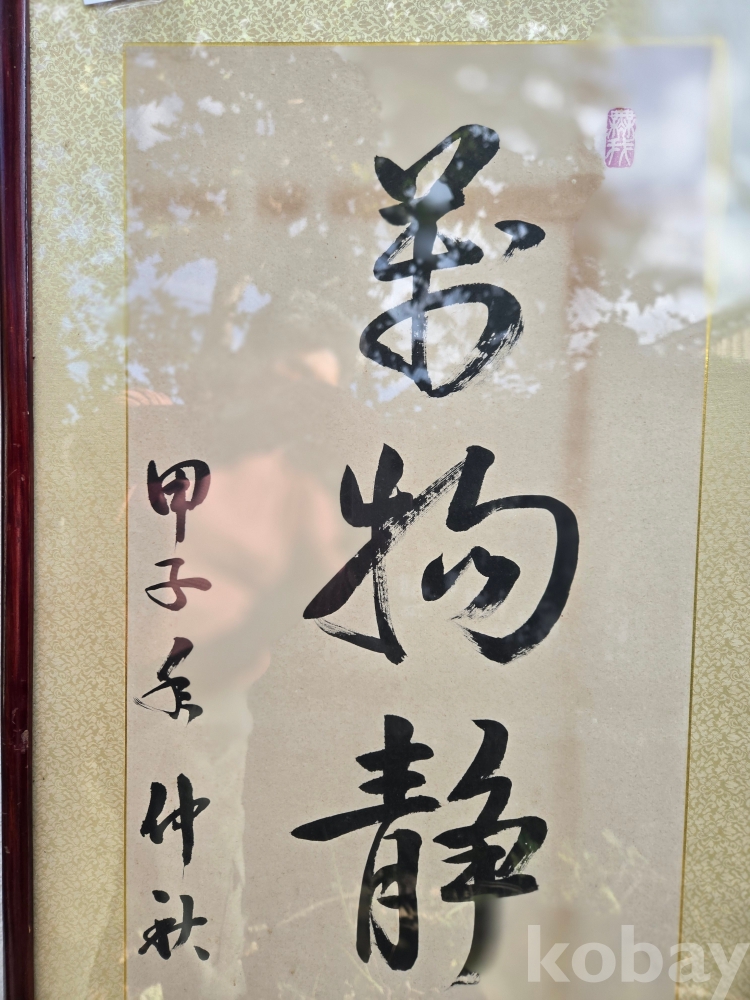 無我
萬物静
甲子年仲秋
kobay